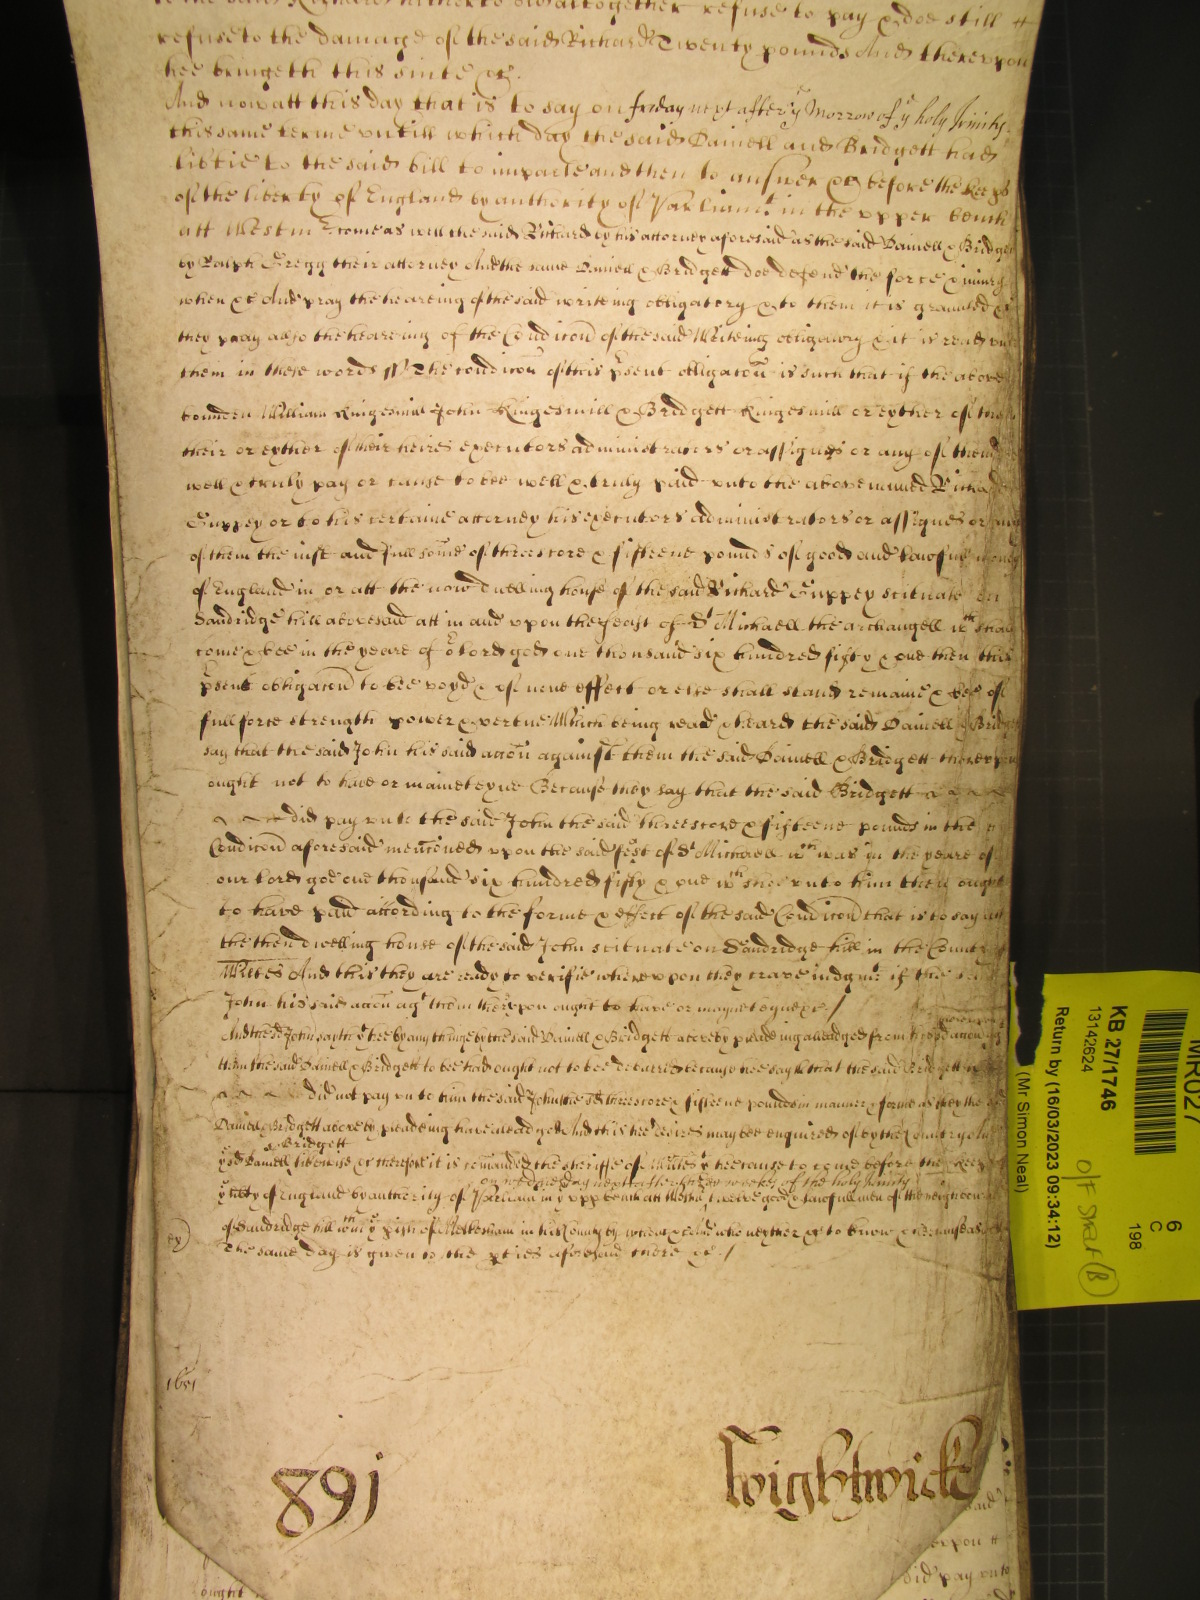 refuse to pay & doe still
refuse to the damage of the said Richard Twenty pounds And thereupon
hee bringeth this suite &c.
And now att this day that is to say on friday next after ye Morrow of ye holy Trinity
this same terme untill which day the said Daniell and Bridgett had
libtie to the said bill to imparle and then to answer &c before the keeps
of the liberty of England by authority of Parliamt. in the upper bench
att Westm come as well the said Richard by his attorney aforesaid as the said Daniell & Bridget
by Ralph Gregg their attorney And the same Daniell & Bridgett doe defend the force & iniury
when &c And pray the heareing of the said writeing obligatory & to them it is graunted &c
they pray also the heareing of the Condicon of the said Writeing obligatory & it is read unto
them in these words ss The condicon of this psent obligacon is such that if the above
bounden William Kingesmill John Kingesmill & Bridgett Kingesmill or eyther of them
their or eyther of their heires executors administrators or assignes or any of them
well & truly pay or cause to bee well & truly paid unto the above named Richard
Guppey or to his certaine attorney his executors administrators or assignes or any
of them the iust and full some of threescore & fifteene pounds of good and lawfull money
of England in or att the now dwelling house of the said Richard Guppey scituate on
Sandridge hill abovesaid att in and upon the feast of St Michaell the archangell wch shall
come & bee in the yeare of or lord god one thousand six hundred fifty & one then this
psent obligacon to bee voyd & of none effect or else shall stand remaine & bee of
full force strength power & vertue Which being read & heard the said Daniell & Bridget
say that the said John his said accon against them the said Daniell & Bridgett thereupon
ought not to have or mainteyne Because they say that the said Bridgett
did pay unto the said John the said threescore & fifteene pounds in the
Condicon aforesaid mencioned upon the said feast of St Michaell wch was in the yeare of
our lord god one thousand six hundred fifty & one wch shee unto him then ought
to have paid according to the forme & effect of the said Condicon that is to say att
the then dwelling house of the said John scituate on Sandridge hill in the County of
Wiltes And this they are ready to verifie whereupon they crave iudgmt if the said
John his said accon agt them thereupon ought to have or mayneteyne &c /
And the sd John sayth yt hee by any thinge by the said Daniell & Bridgett above by pleadeing alleadged from his said accon
thereupon agt
them the said Daniell & Bridgett to be had ought not to bee debarred because hee sayth that the said Bridgett
did not pay unto him the said John the sd threescore & fifteene pounds in manner & forme as they the sd
Daniell & Bridgett above by pleadeing have alleadged And this hee desires may bee enquired of by the Country And
& Bridgett
ye sd Daniell likewise &c therefore it is comanded the sheriffe of Wiltes yt hee cause to come before the keeps
on wednesday next after three weekes of the holy Trinity
ye libty of England by authority of Parliam in ye upper bench att Westm twelve good & lawfull men of the neighbour
of Sandridge hill wthin ye pish of Melkesham in his County by whom &c And who neyther &c to know &c because as
The same day is given to the pties aforesaid there &c. /
ex
1651
891
Wightwick
said
upon
did pay unto
ought
MR027
KB 27/1746
13142624
Return by (16/03/2023 09:34:12)
(Mr Simon Neal)
6
C
198
O/F sheet (B)